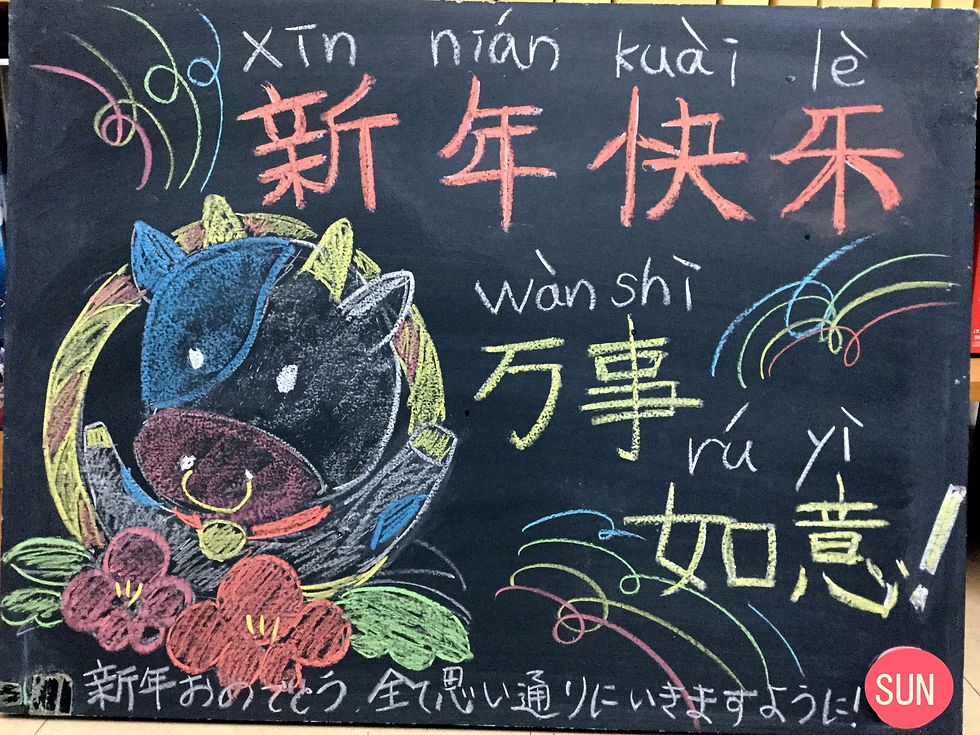 xīn nián kuài lè
新年快乐
wàn shì
万事
rú yì
如意!
新年おめでとう 全て思い通りにいきますように!
SUN